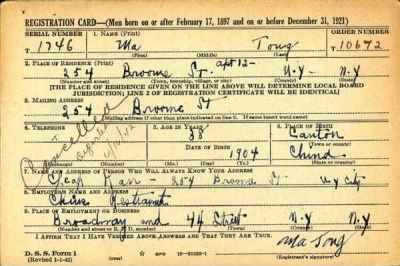 REGISTRATION CARD—(Men born on or after February 17, 1897 and on or before December 31, 1921)
SERIAL NUMBER 1. NAME (Print) ORDER NUMBER
1746 Ma Tong 10672
(First) (Middle) (Last)
2. PLACE OF RESIDENCE (Print) apt 12-
254 Broome St. N-Y- N-Y
(Number and street) (Town, township, village, or city) (County) (State)
[THE PLACE OF RESIDENCE GIVEN ON THE LINE ABOVE WILL DETERMINE LOCAL BOARD
JURISDICTION; LINE 2 OF REGISTRATION CERTIFICATE WILL BE IDENTICAL]
3. MAILING ADDRESS
254 Broome St
[Mailing address if other than place indicated on line 2. If same insert word same]
4. TELEPHONE 5. AGE IN YEARS 6. PLACE OF BIRTH
38 Canton
DATE OF BIRTH
1904 China
Cancelled
(Exchange) (Number) (Mo.) (Day) (Yr.) (State or country)
7. NAME AND ADDRESS OF PERSON WHO WILL ALWAYS KNOW YOUR ADDRESS
Kam 254 Broome St N-Y City
8. EMPLOYER'S NAME AND ADDRESS
9. PLACE OF EMPLOYMENT OR BUSINESS
Broadway and 44 Street N-Y N-Y
(Number and street or R. F. D. number) (Town) (County) (State)
I AFFIRM THAT I HAVE VERIFIED ABOVE ANSWERS AND THAT THEY ARE TRUE.
D. S. S. Form 1
(Revised 1-1-42) (over)
Ma Tong
(Registrant's signature)